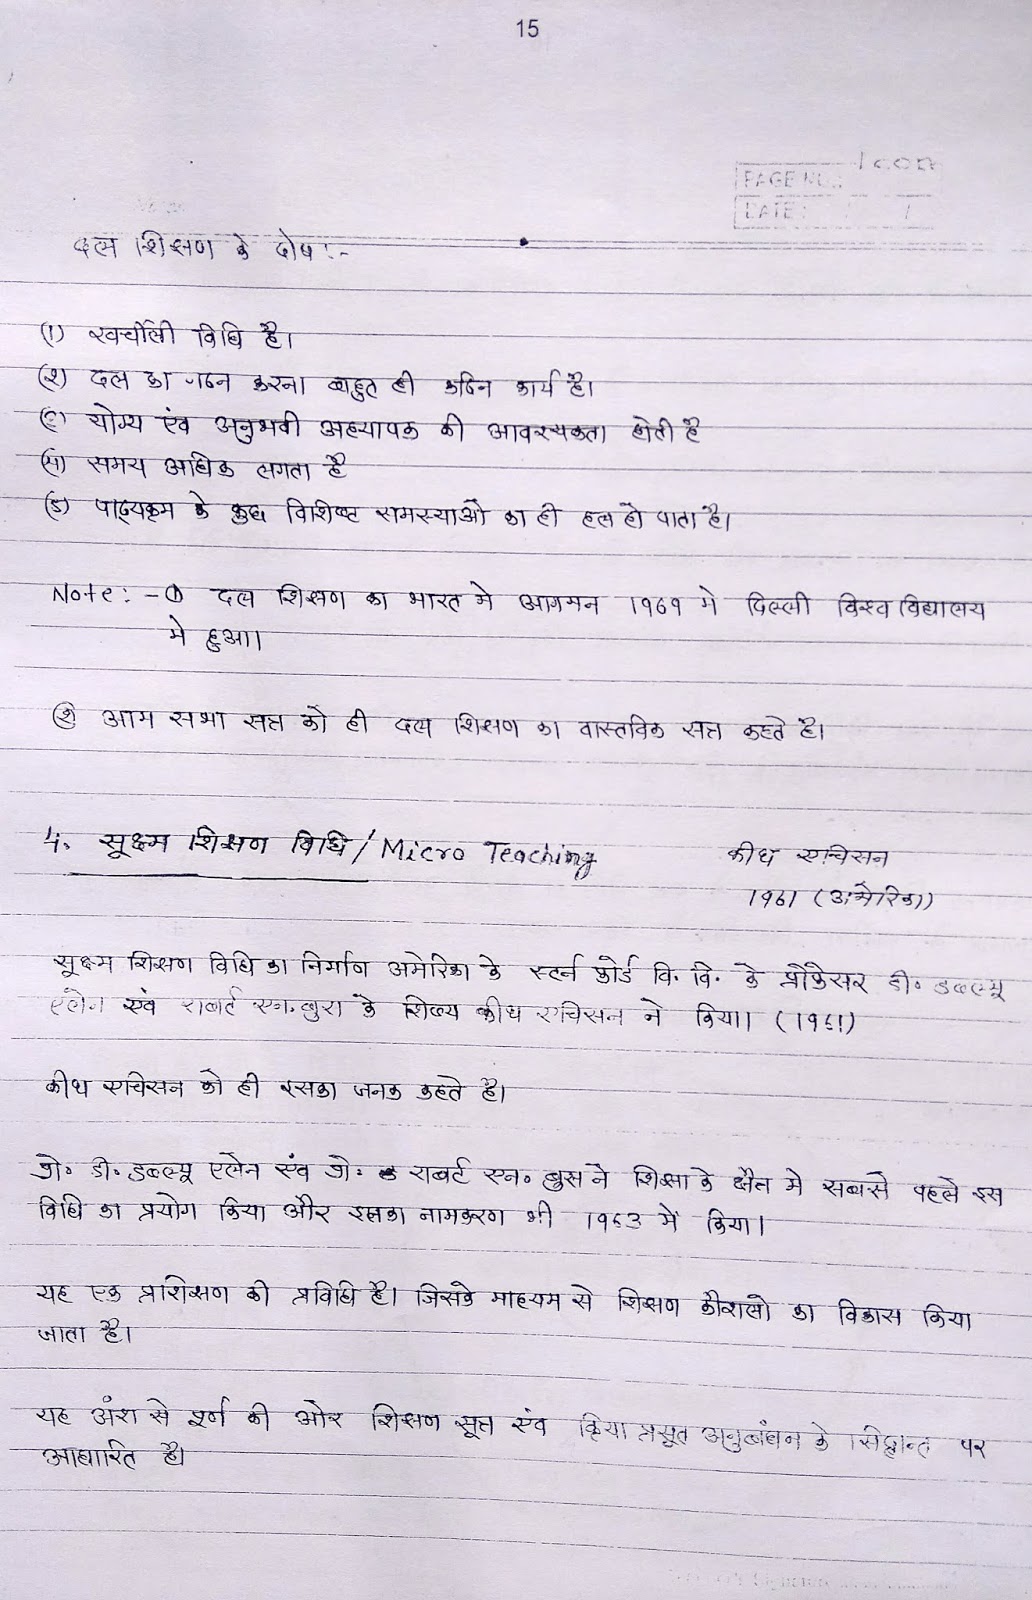 15
PAGE NO.:
DATE:
दल शिक्षण के दोष :-
(1) खर्चीली विधि है।
(2) दल का गठन करना बहुत ही कठिन कार्य है।
(3) योग्य एंव अनुभवी अध्यापक की आवश्यकता होती है
(4) समय अधिक लगता है
(5) पाठ्यक्रम के कुछ विशिष्ट समस्याओं का ही हल हो पाता है।
Note: - ① दल शिक्षण का भारत मे आगमन 1969 मे दिल्ली विश्व विद्यालय
मे हुआ।
② आम सभा सत्र को ही दल शिक्षण का वास्तविक सत्र कहते है।
4. सूक्ष्म शिक्षण विधि / Micro Teaching
कीथ एचिसन
1961 (अमेरिका)
सूक्ष्म शिक्षण विधि का निर्माण अमेरिका के स्टर्न फोर्ड वि. वि. के प्रोफेसर डी. डब्ल्यू
एलेन एंव राबर्ट एन. बुश के शिष्य कीथ एचिसन ने किया। (1961)
कीथ एचिसन को ही इसका जनक कहते है।
प्रो. डी. डब्ल्यू एलेन एंव प्रो. राबर्ट एन. बुस ने शिक्षा के क्षेत्र मे सबसे पहले इस
विधि का प्रयोग किया और इसका नामकरण भी 1963 में किया।
यह एक प्रशिक्षण की प्रविधि है। जिसके माध्यम से शिक्षण कौशलो का विकास किया
जाता है।
यह अंश से पूर्ण की ओर शिक्षण सूत्र एंव क्रिया प्रसूत अनुबंधन के सिद्वान्त पर
आधारित है।